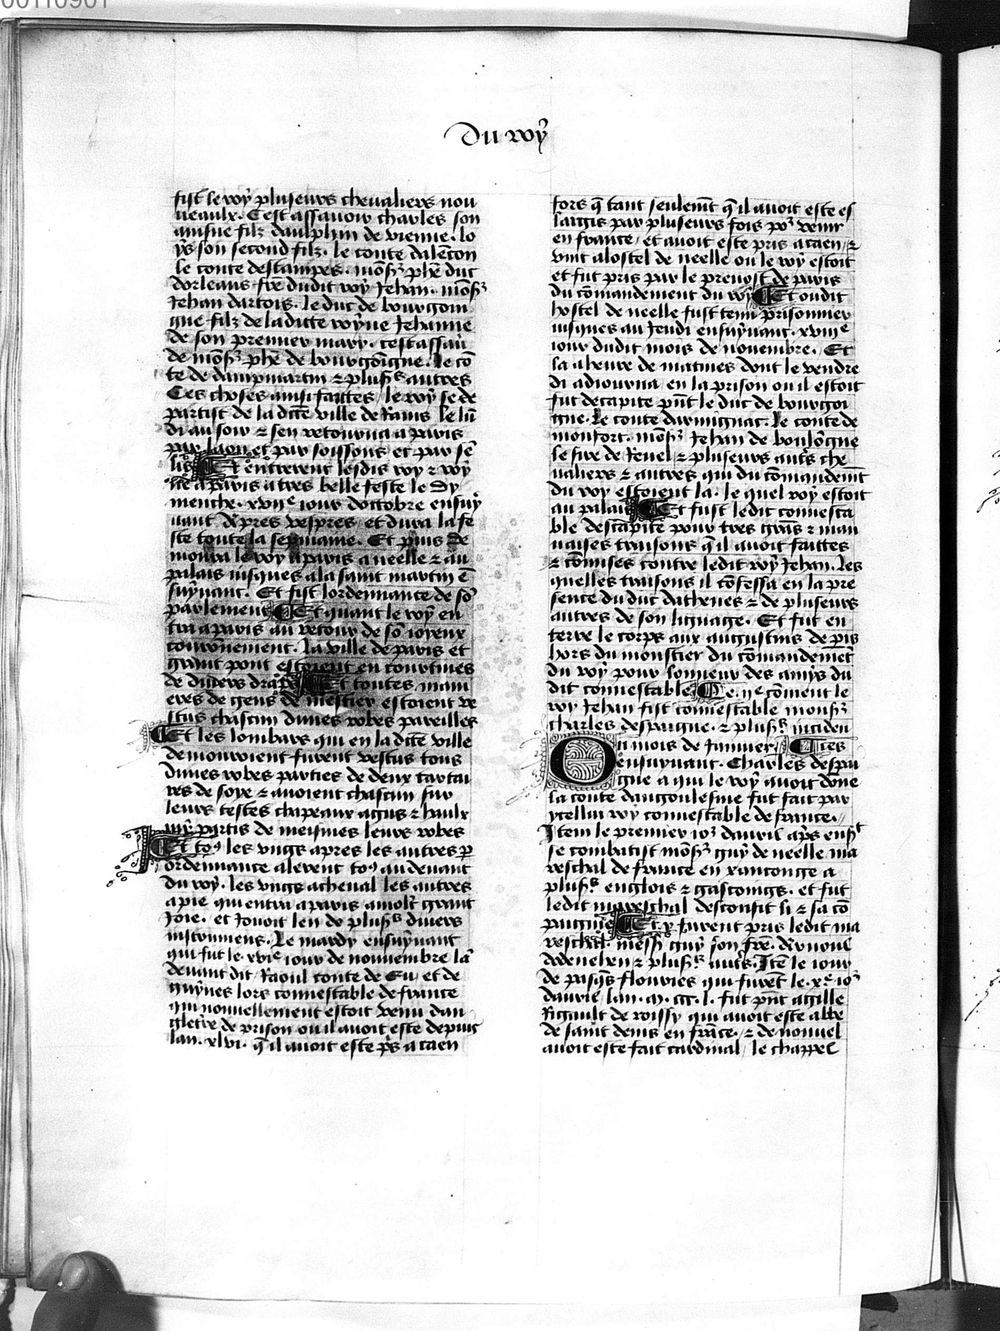 00110901
Du roy
fist le roy pluseurs chevaliers nou
ueaulx. Cest assauoir charles son
ainsne filz daulphin de vienne. lo
ys son second filz. le conte dalencon
le conte destampes. mōsʳ phē duc
dorleans frē dudit roy Jehan. mōsʳ
Jehan dartois. le duc de bourgoin
gne filz de ladicte royne Jehanne
de son premier mary. cest assau
de mōsʳ phē de bourgoigne. le cō
te de dampmartin ⁊ plusˢ autres
Ces choses ainsi faictes / le roy se de
partist de la dicte ville de Rains le lū
di au soir ⁊ sen retourna a paris
par laon et par soissons et par sē
lis Et entrerent lesdis roy ⁊ roy
ne a paris a tres belle feste le dy
menche. xviiᵉ iour doctobre ensuy
uant Apres vespres / et dura la fe
ste toute la sepmaine. Et puis de
moura le roy a paris a neelle ⁊ au
palais iusques a la saint martin ē
suyuant. Et fist lordennance de sō
parlement Et quant le roy en
tra a paris au retour de sō ioyeux
couronnement. la ville de paris et
grant pont estoient en courtines
de diuers draps Et toutes mani
eres de gens de mestier estoient ve
stus chascun dunes robes pareilles
Et les lombars qui en la dicte ville
demouroient furent vestus tous
dunes robes parties de deux tartai
res de soye ⁊ auoient chascun sur
leurs testes chapeaux agus ⁊ haulx
my partis de meismes leurs robes
Et toˢ les vngs apres les autres p̄
ordennance alerent toˢ au deuant
du roy. les vngs a cheual les autres
a pie qui entra a paris a moult grant
Joie. et Jouoit len de plusˢ diuers
instrumens. Le mardy ensuyuant
qui fut le xviᵉ iour de nouuembre la
deuant dit / Raoul conte de Eu et de
guynes lors connestable de france
qui nouuellement estoit venu dan
gleterre de prison ou il auoit este depuis
lan. xlvi. q̄ il auoit este pris a caen
fors q̄ tant seulemt̄ q̄ il auoit este es
largis par pluseurs fois poʳ venir
en france / et auoit este pris a caen / ⁊
vint a lostel de neelle ou le roy estoit
et fut pris par le preuost de paris
du cōmandement du roy Et oudit
hostel de neelle fust tenu prisonnier
iusques au Jeudi ensuyuant. xviiiᵉ
iour dudit mois de nouembre. Et
la a heure de matines dont le vendre
di adiourna en la prison ou il estoit
fut decapite pn̄t le duc de bourgoi
gne. Le conte darmignac. Le conte de
monfort. mōsʳ Jehan de boulōgne
le sire de Reuel ⁊ pluseurs autʳs che
ualiers ⁊ autres qui du cōmandemt̄
du roy estoient la. le quel roy estoit
au palais Et fust ledit connesta
ble descapite pour tres grāˢ ⁊ mau
uaises traisons q̄ il auoit faittes
⁊ cōmises contre ledit roy Jehan. les
quelles traisons il cōfessa en la pre
sence du duc dathenes ⁊ de pluseurs
autres de son lignage. Et fut en
terre le corps aux augustins de paris
hors du moustier du cōmandemēt
du roy pour lonneur des amis du
dit connestable e. iiᵉ cōment le
roy Jehan fist connestable monsʳ
charles despaigne. ⁊ plusˢ inciden
On mois de Januier. ces
ensuyuant. Charles despai
gne a qui le roy auoit dōne
la conte dangoulesme fut fait par
ycellui roy connestable de france.
Item le premier ioʳ dauril aps ensᵗ
se combatist mōsʳ guy de neelle ma
reschal de france en xantonge a
plusˢ englois ⁊ gascoings. et fut
ledit mareschal desconfit li ⁊ sa cō
paignie Et y furent pris ledit ma
reschal. messʳ guy son frē. Arnoul
dodenehen ⁊ plusˢ autʳs. Itē le iour
de pasqˢ flouries qui furēt le .xᵉ ioʳ
dauril. lan. m. ccc. l. fut pn̄t a gille
Rigault de roissy qui auoit este abbe
de saint denis en frāce. ⁊ de nouuel
auoit este fait cardinal / le chappel